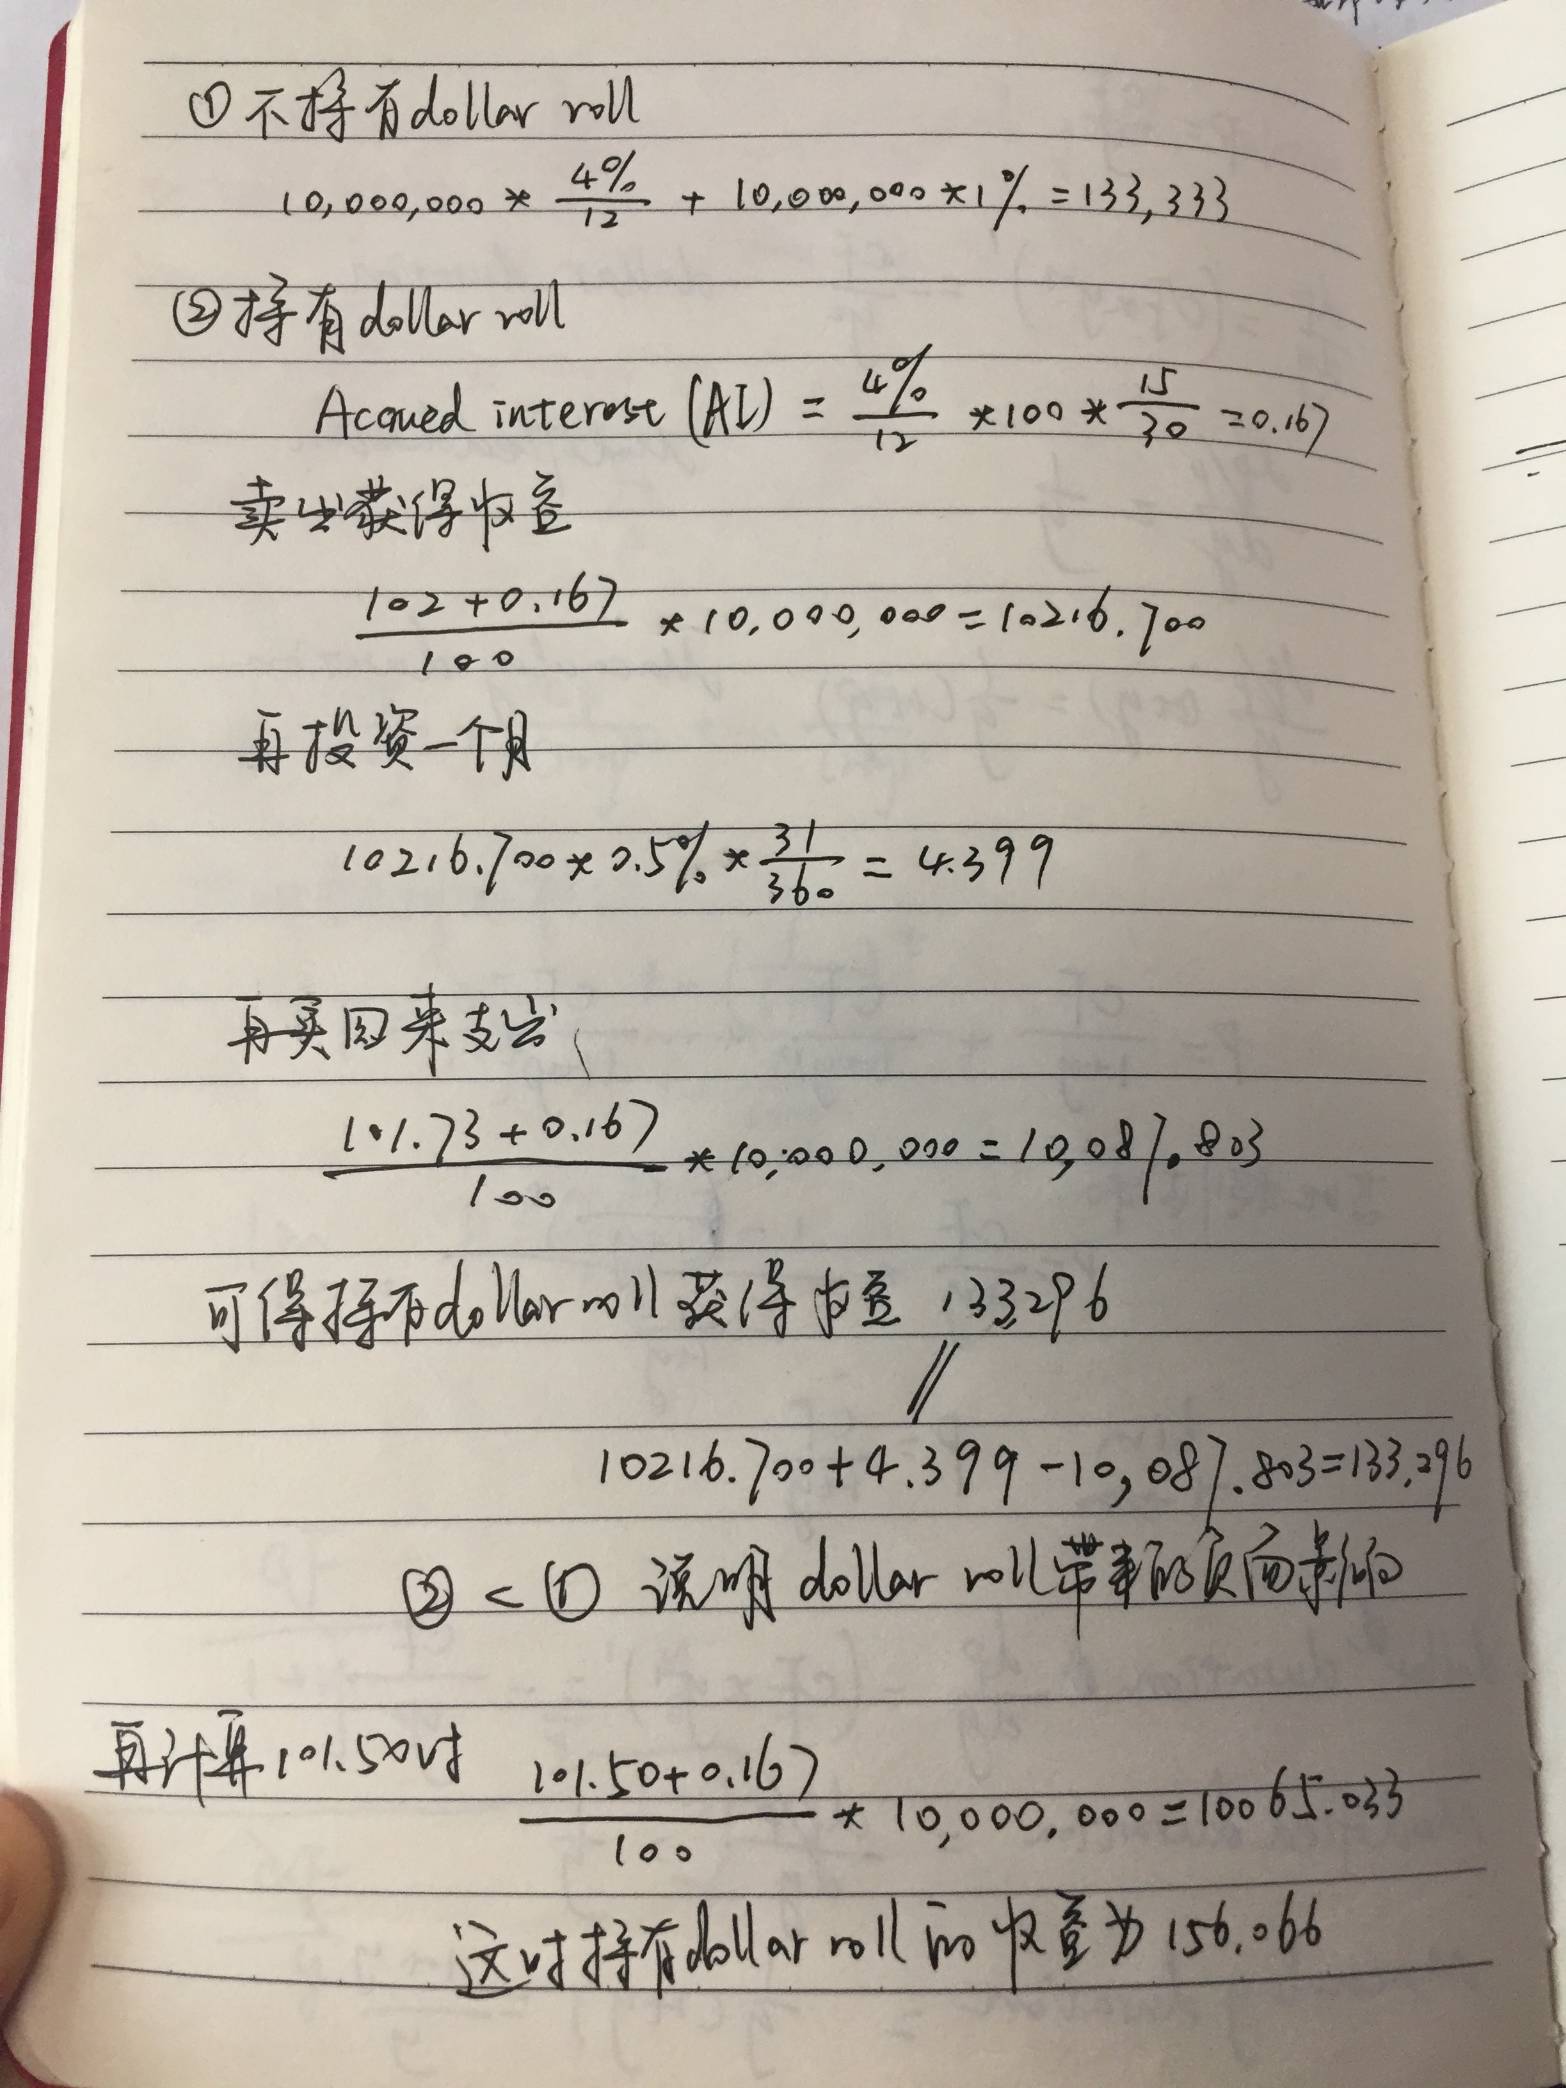 ① 不持有dollar roll
10,000,000 * 4%/12 + 10,000,000 * 1% = 133,333
② 持有dollar roll
Accrued interest (AI) = 4%/12 * 100 * 15/30 = 0.167
卖出获得收益
102 + 0.167/100 * 10,000,000 = 10216.700
再投资一个月
10216.700 * 0.5% * 31/360 = 4.399
再买回来支出
101.73 + 0.167/100 * 10,000,000 = 10,087.803
可得持有dollar roll 获得收益 133296
||
10216.700 + 4.399 - 10,087.803 = 133.296
② < ① 说明 dollar roll 带来的负面影响
再计算101.50时 101.50 + 0.167/100 * 10,000.000 = 10065.033
这时持有dollar roll 的收益为 156.066